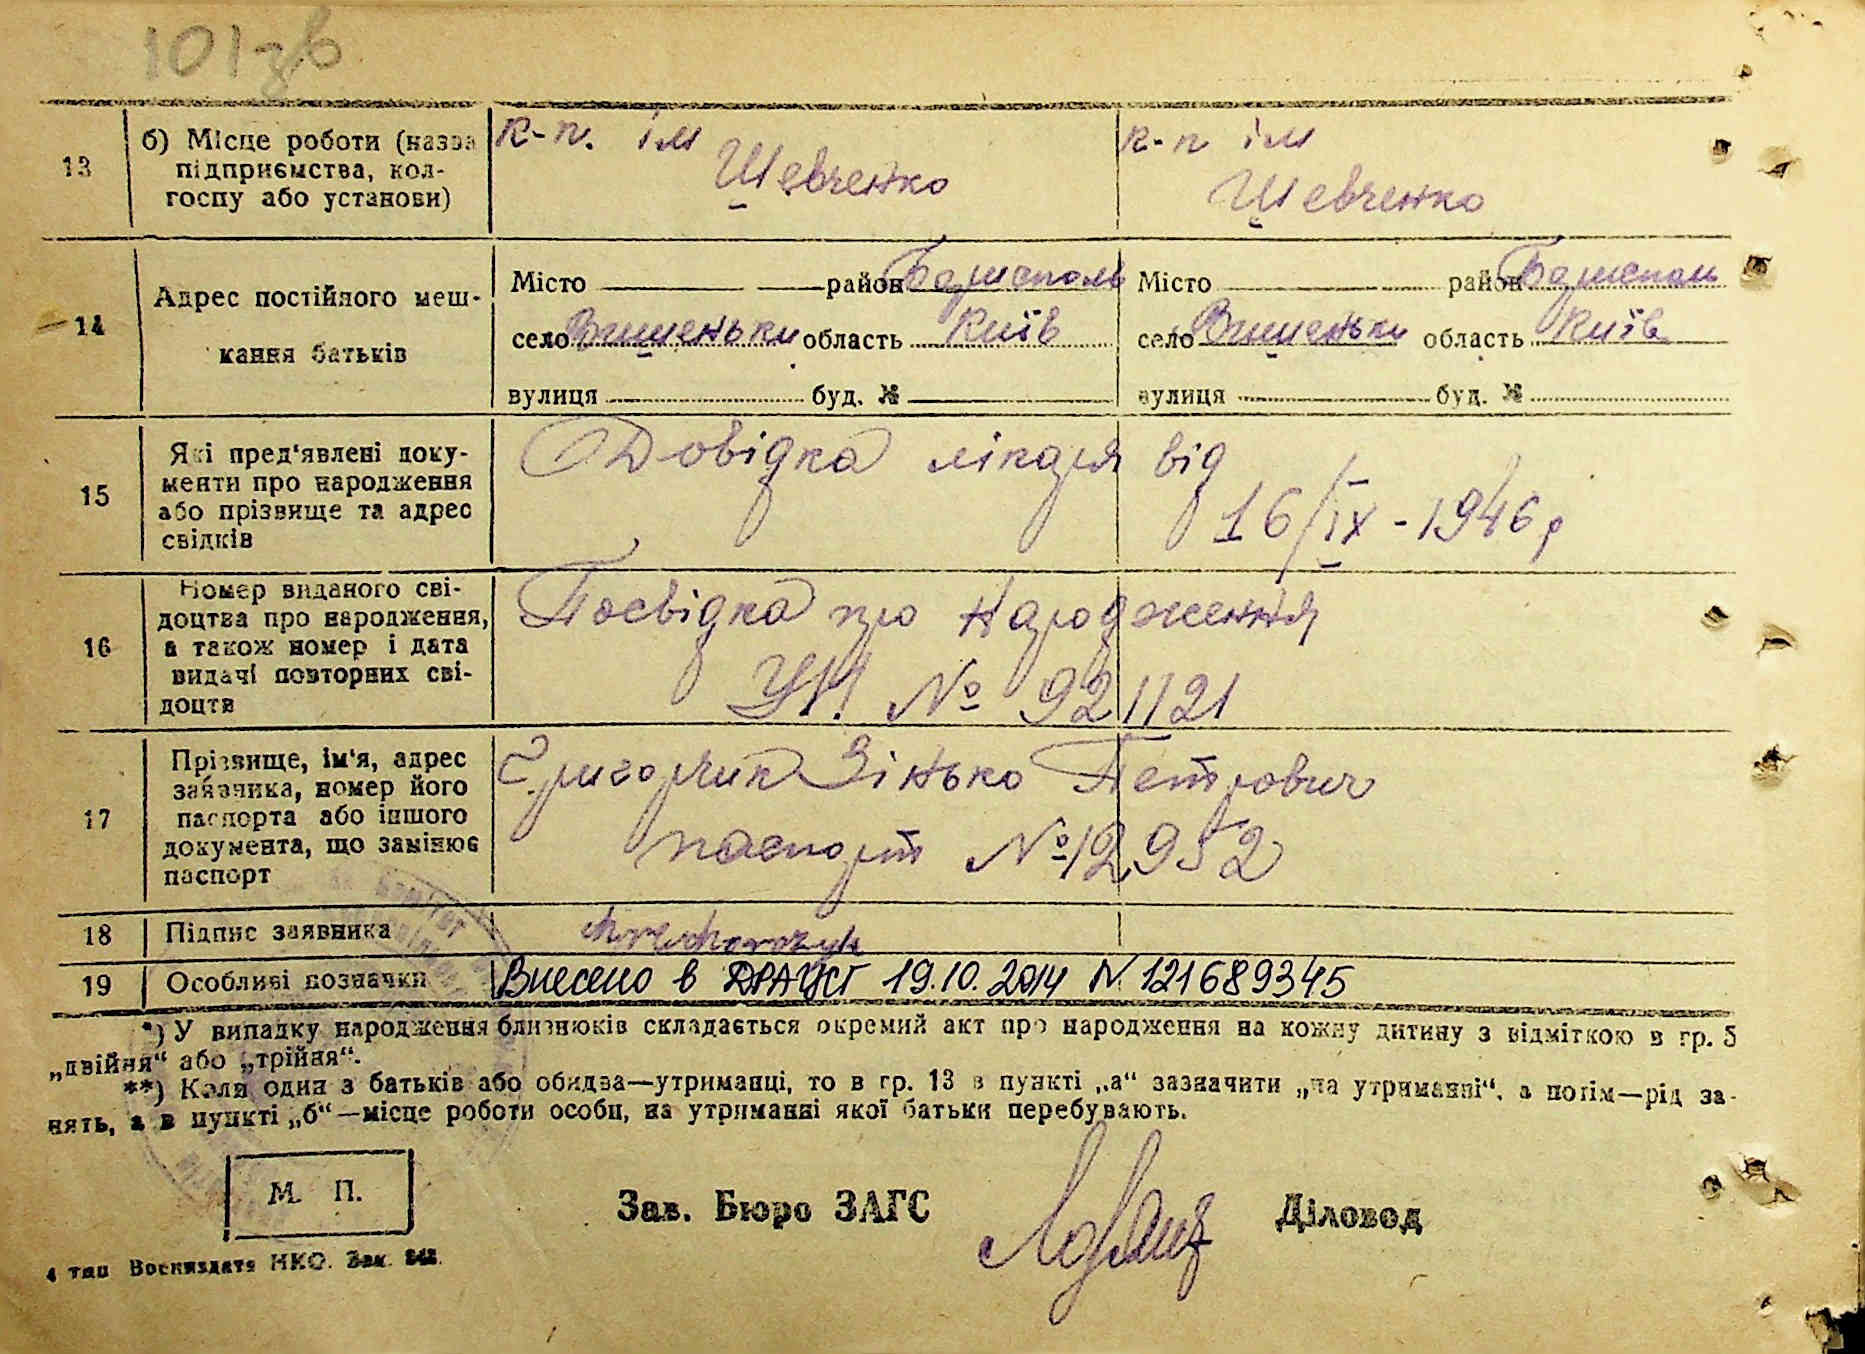 101зв
13
б) Місце роботи (назва
підприємства, кол-
госпу або установи)
к-п. ім
Шевченко
к-п ім
Шевченко
14
Адрес постійного меш-
кання батьків
Місто район Бориспаль
село Вишеньки область Київ
вулиця буд. №
Місто район Бориспол
село Вишеньки область Київ
вулиця буд. №
15
Які пред'явлені доку-
менти про народження
або прізвище та адрес
свідків
Довідка лікаря від
16/IX - 1946 р
16
Номер виданого сві-
доцтва про народження,
а також номер і дата
видачі повторних сві-
доцтв
Посвідка про народження
УН № 921121
17
Прізвище, ім'я, адрес
заявника, номер його
паспорта або іншого
документа, що замінює
паспорт
Григорчик Зінько Петрович
паспорт № 12952
18
Підпис заявника
19
Особливі позначки
Внесено в ДРАЦСГ 19.10.2014 N 121689345
*) У випадку народження близнюків складається окремий акт про народження на кожну дитину з відміткою в гр. 5
„двійня“ або „трійня“.
**) Коли один з батьків або обидва—утриманці, то в гр. 13 в пункті „а“ зазначити „на утриманні“, а потім—рід за-
нять, а в пункті „б“—місце роботи особи, на утриманні якої батьки перебувають.
М. П.
Зав. Бюро ЗАГС
Діловод
4 тип Воениздата НКО. Зак.